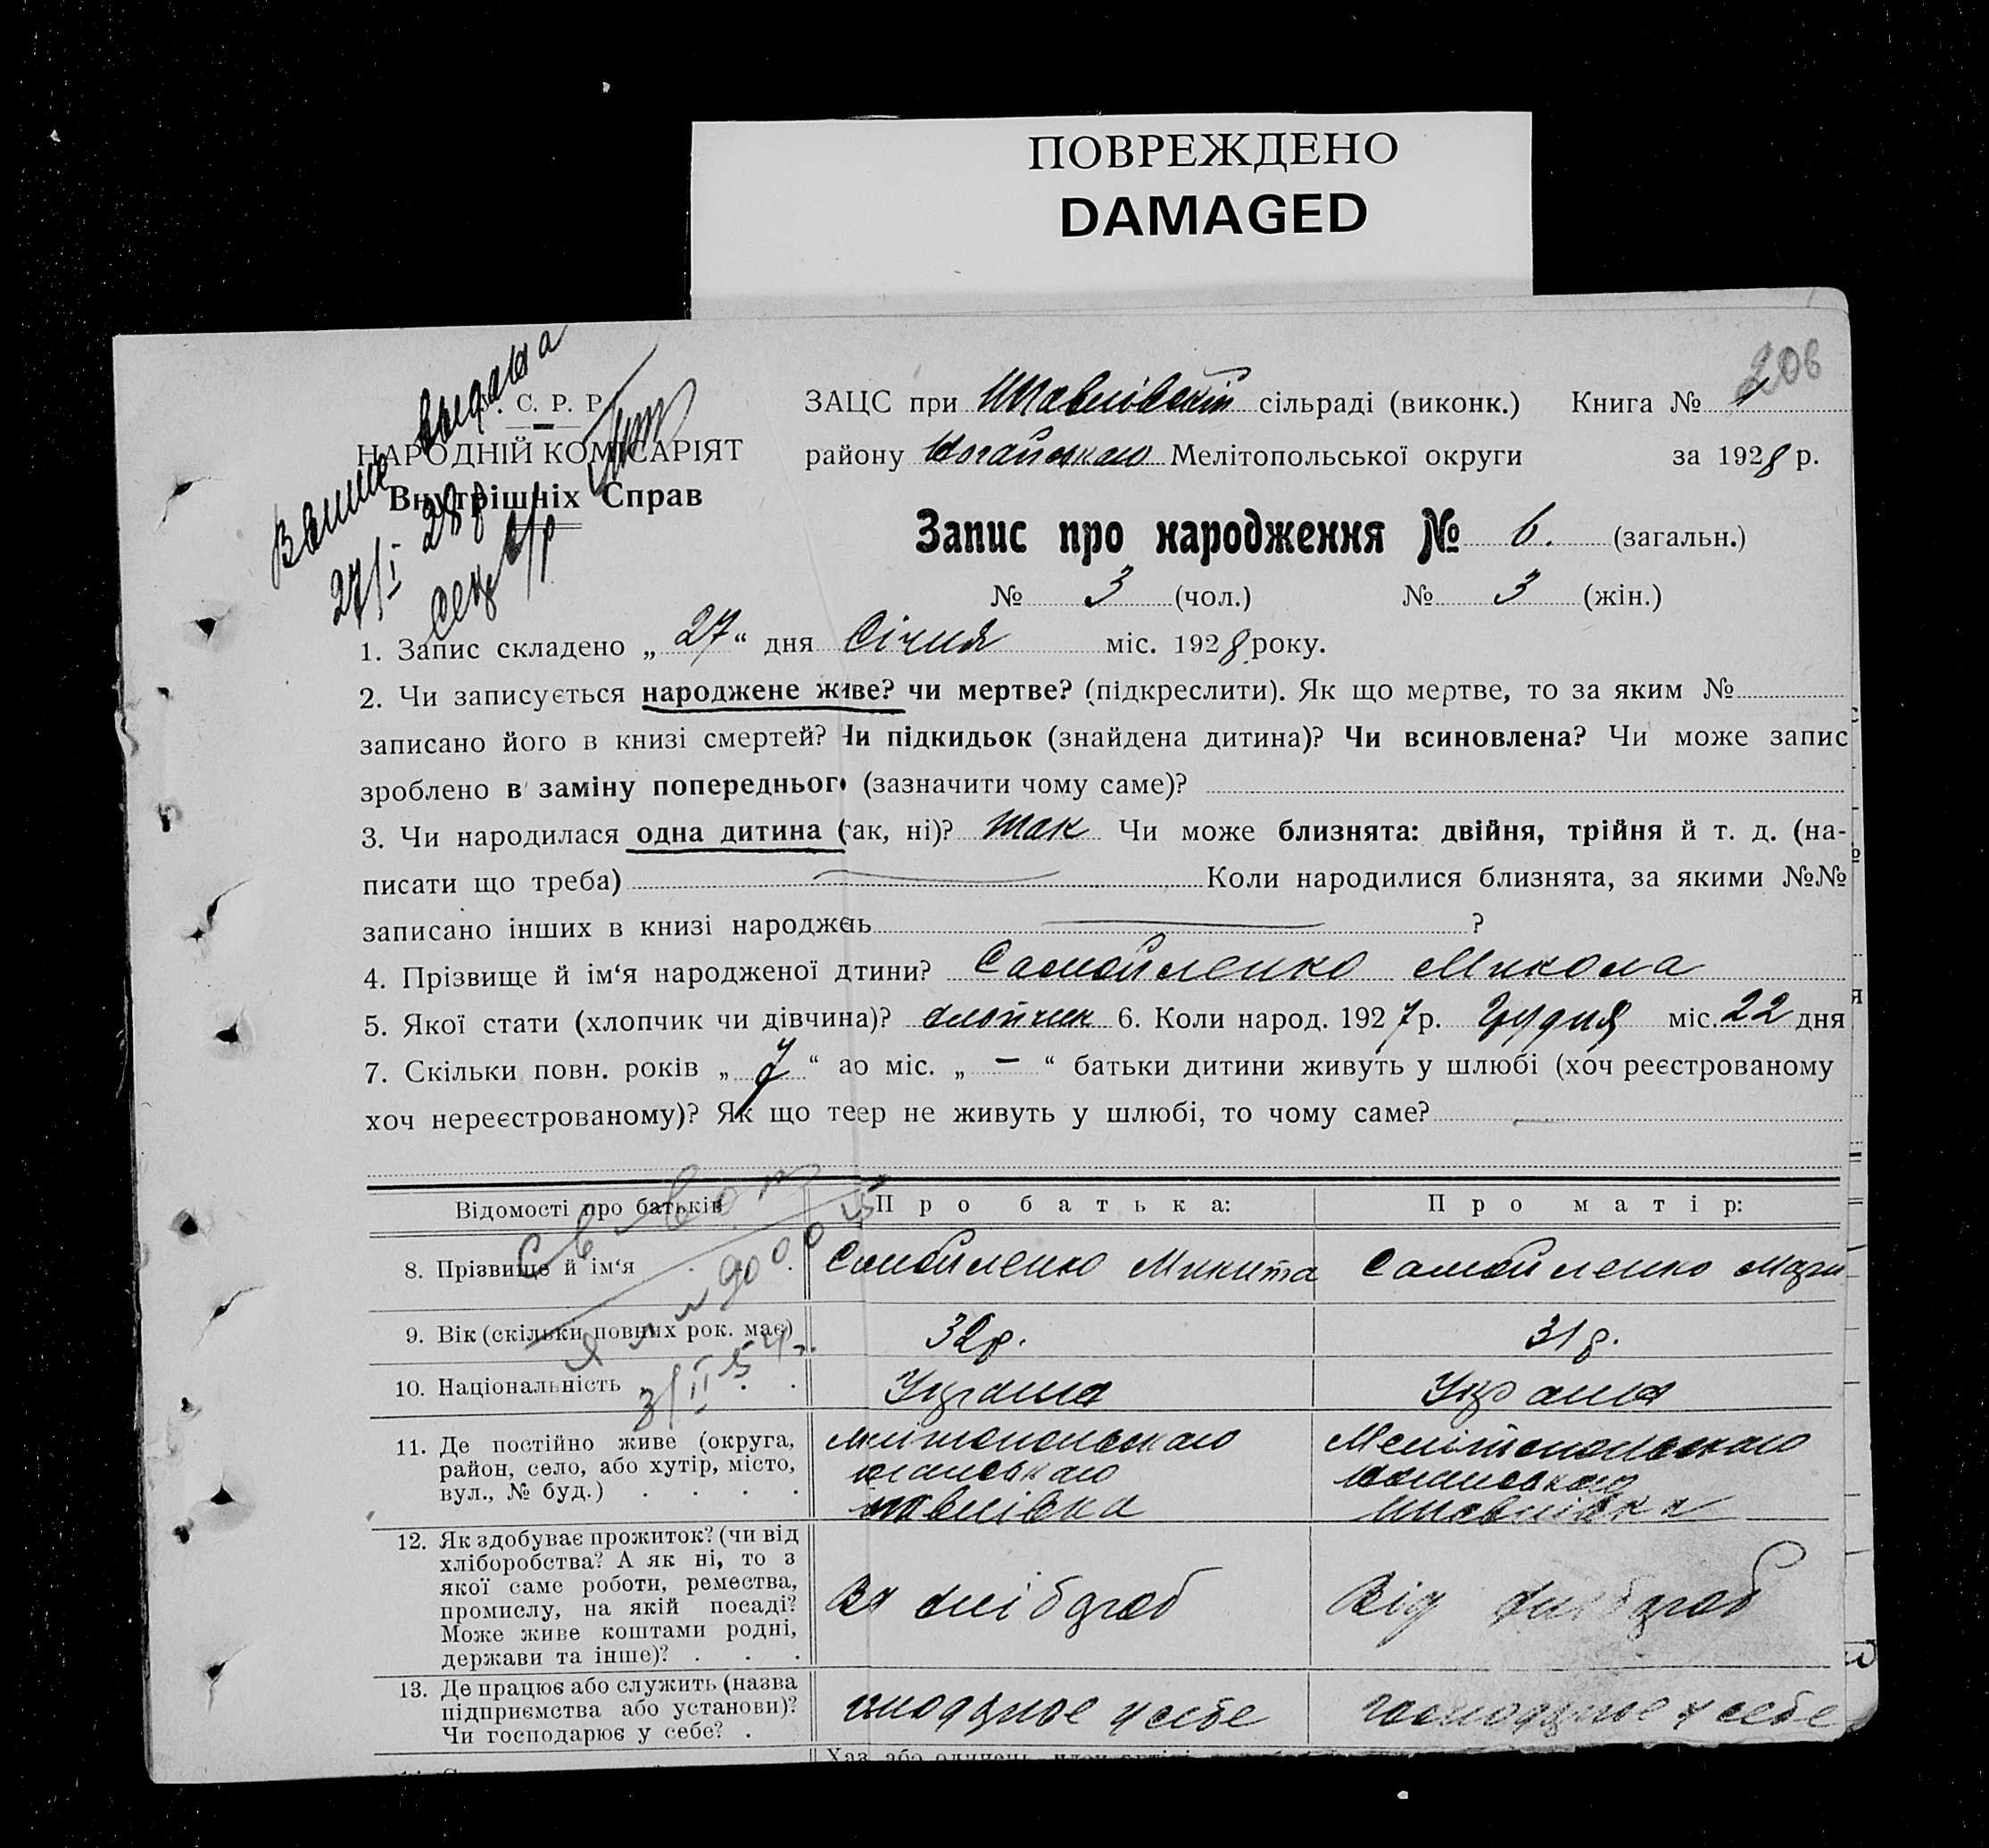 ПОВРЕЖДЕНО
DAMAGED
206
С. Р. Р.
НАРОДНІЙ КОМІСАРІЯТ
Внутрішніх Справ
27/I 28 р
ЗАЦС при сільраді (виконк.) Книга № 1
району Ногайського Мелітопольської округи за 1928 р.
Запис про народження № 6. (загальн.)
№ 3 (чол.) № 3 (жін.)
1. Запис складено „ 27 “ дня Січня міс. 1928 року.
2. Чи записується народжене живе? чи мертве? (підкреслити). Як що мертве, то за яким №
записано його в книзі смертей? Чи підкидьок (знайдена дитина)? Чи всиновлена? Чи може запис
зроблено в заміну попереднього (зазначити чому саме)?
3. Чи народилася одна дитина (так, ні)? так Чи може близнята: двійня, трійня й т. д. (на-
писати що треба) Коли народилися близнята, за якими №№
записано інших в книзі народжень ?
4. Прізвище й ім‘я народженої дтини? Самойленко Микола
5. Якої стати (хлопчик чи дівчина)? хлопчик 6. Коли народ. 1927 р. Грудня міс. 22 дня
7. Скільки повн. років „ 7 “ або міс. „ — “ батьки дитини живуть у шлюбі (хоч реєстрованому
хоч нереєстрованому)? Як що тепер не живуть у шлюбі, то чому саме?
Відомості про батьків Про батька: Про матір:
8. Прізвище й ім‘я Самойленко Микита Самойленко
9. Вік (скільки повних рок. має) 32 р. 31 р.
3/II 54 г.
10. Національність
11. Де постійно живе (округа,
район, село, або хутір, місто,
вул., № буд.)
Мелітопольського
12. Як здобуває прожиток? (чи від
хліборобства? А як ні, то з
якої саме роботи, ремества,
промислу, на якій посаді?
Може живе коштами родні,
держави та інше)?
Від хлібороб Від хлібороб
13. Де працює або служить (назва
підприємства або установи)?
Чи господарює у себе?
у себе у себе